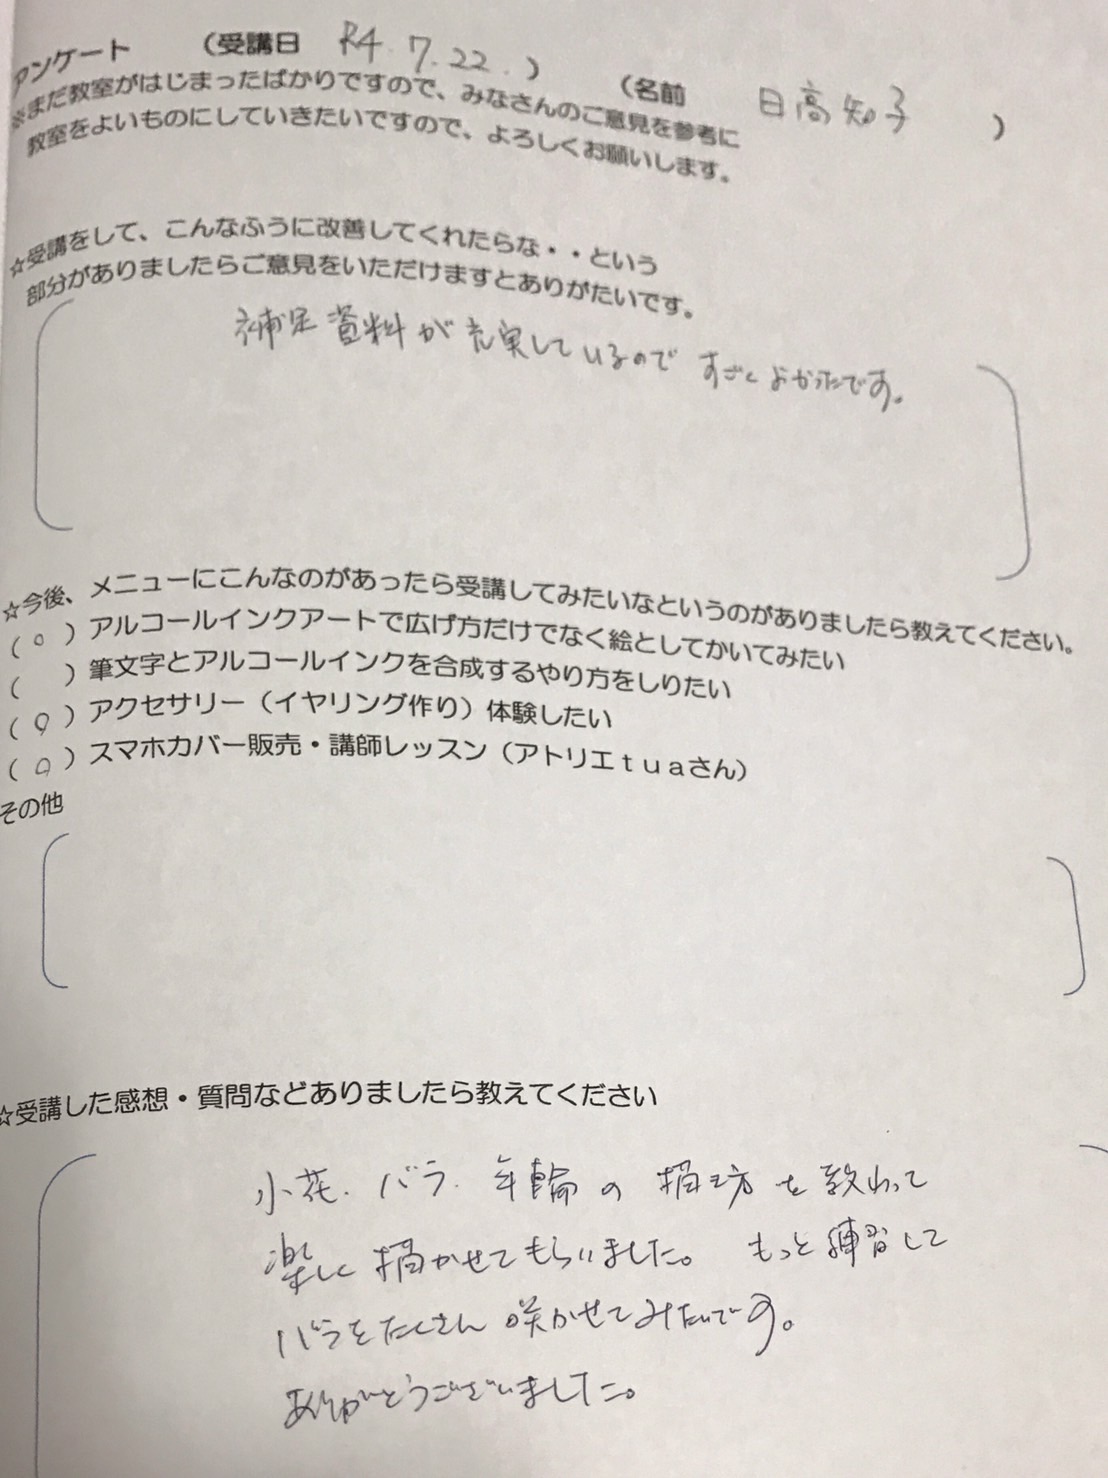 アンケート （受講日 R4.7.22.） （名前 日高知子 ）
※まだ教室がはじまったばかりですので、みなさんのご意見を参考に
教室をよいものにしていきたいですので、よろしくお願いします。
☆受講をして、こんなふうに改善してくれたらな・・という
部分がありましたらご意見をいただけますとありがたいです。
補足資料が充実しているので すごくよかったです。
☆今後、メニューにこんなのがあったら受講してみたいなというのがありましたら教えてください。
（○）アルコールインクアートで広げ方だけでなく絵としてかいてみたい
（ ）筆文字とアルコールインクを合成するやり方をしりたい
（○）アクセサリー（イヤリング作り）体験したい
（○）スマホカバー販売・講師レッスン（アトリエｔｕａさん）
その他
☆受講した感想・質問などありましたら教えてください
小花.バラ.年輪の描き方を教わって
楽しく描かせてもらいました。もっと練習して
バラをたくさん咲かせてみたいです。
ありがとうございました。